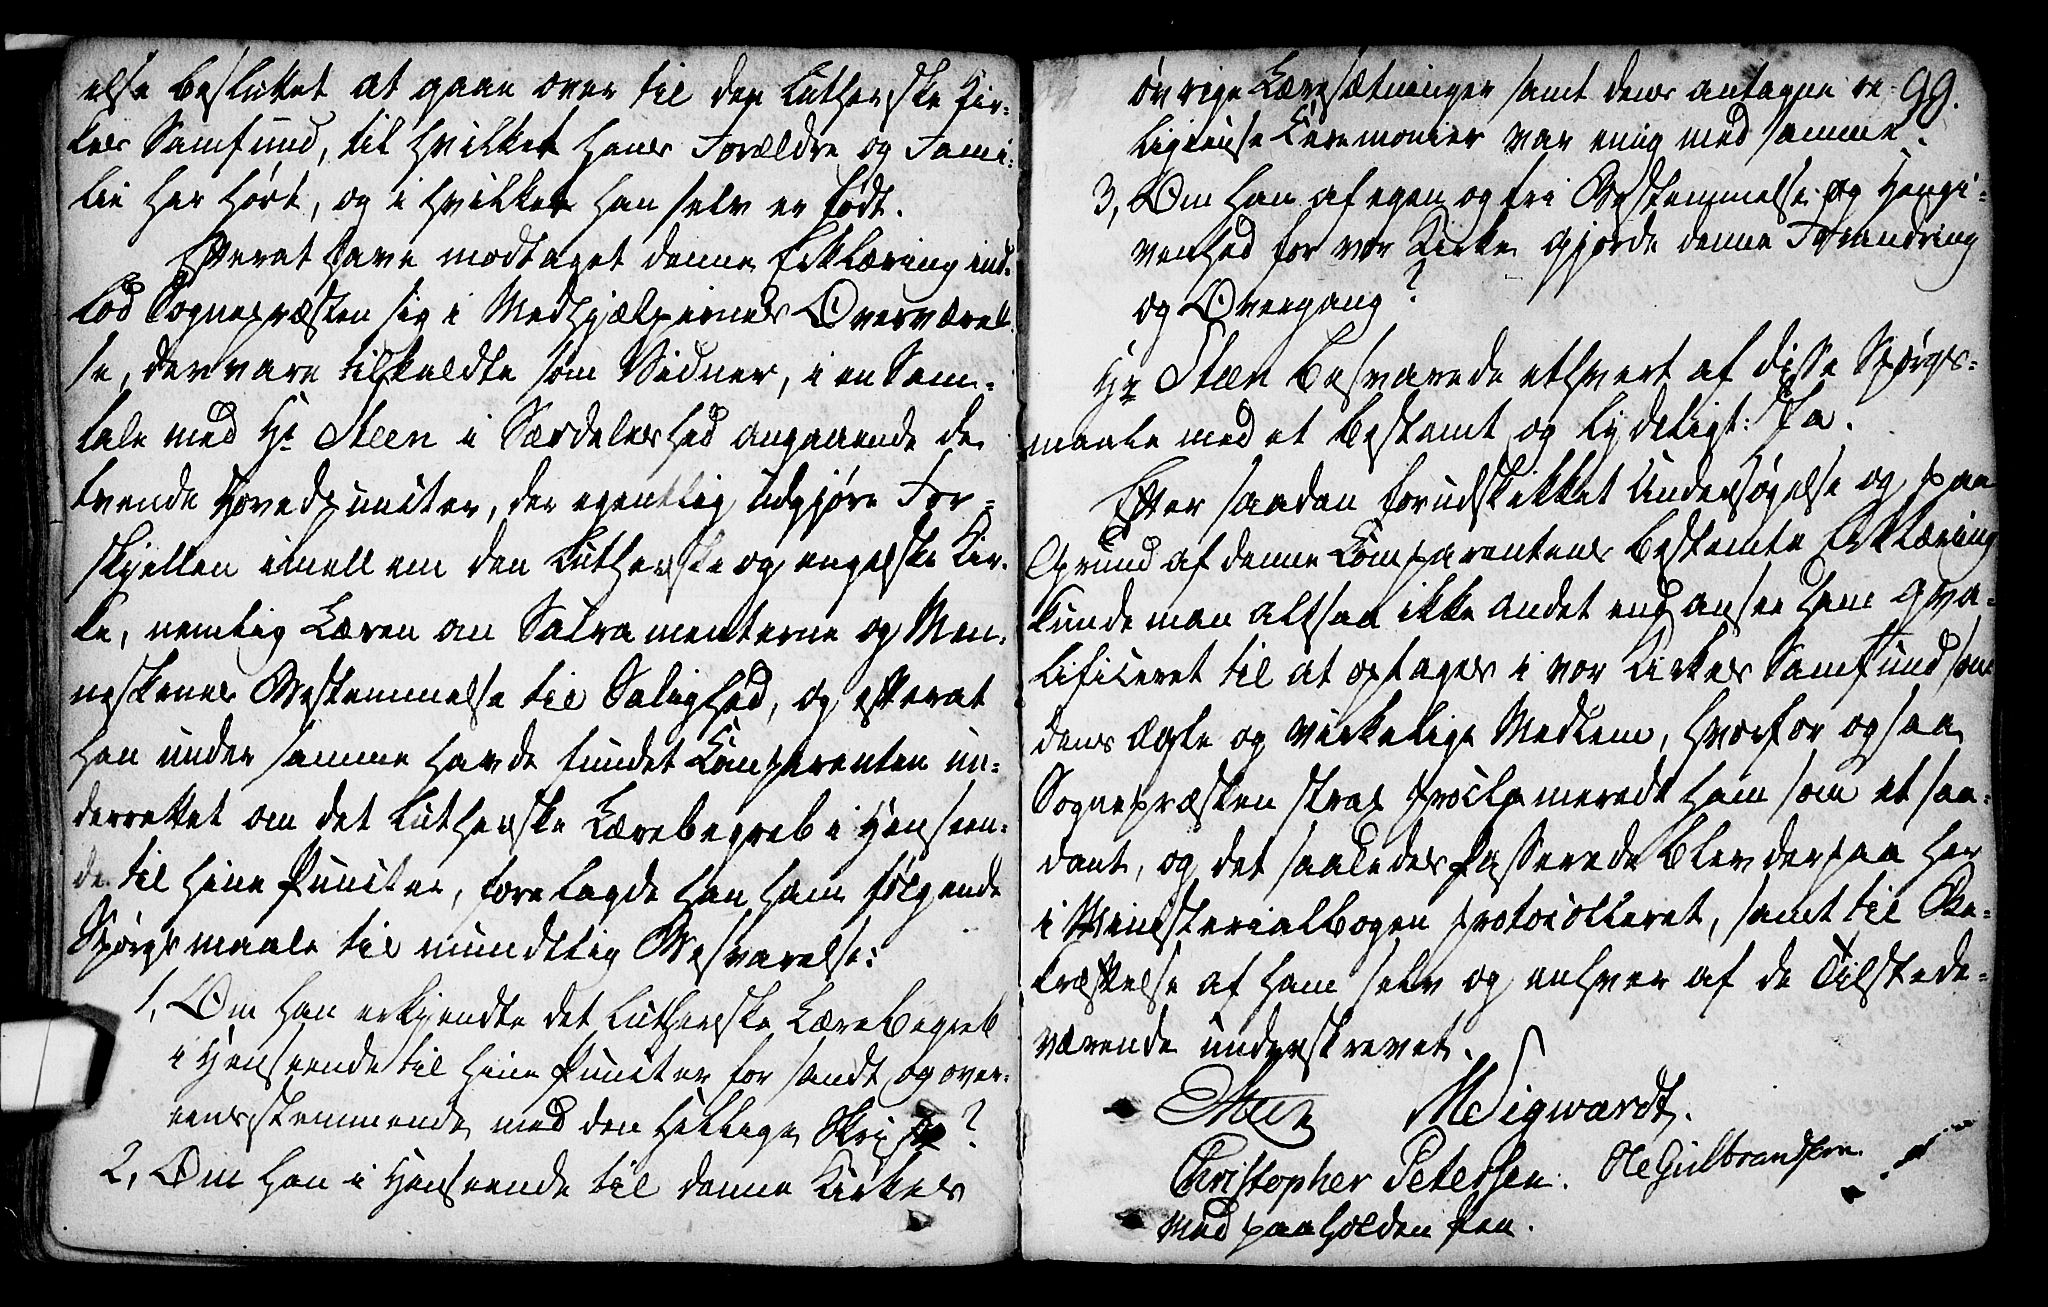 else besluttet at gaae over til den Lutherske Kir-
kes Samfund, til hvilket hans Forældre og Fami-
lie har hørt, og i hvilket han selv er født.
Efterat have modtaget denne Erklæring ind-
lod Sognepræsten sig i Medhjælpernes Overværel-
se, der vare tilkaldte som Vidner, i en Sam-
tale med Hr Steen i Særdeleshed angaaende de
tvende Hovedpuncter, der egentlig udgjøre For-
skjellen imellem den Lutherske og engelske Kir-
ke, nemlig Læren om Sacramenterne og Men-
neskenes Bestemmelse til Salighed, og efterat
han under samme havde fundet Comparenten un-
derrettet om det Lutherske Lærebegreb i Henseen-
de til hine Puncter, forelagde han ham følgende
Spørgsmaale til mundtlig Besvarelse:
1, Om han erkjendte det Lutherske Lærebegreb
i Henseende til hine Puncter for sandt og over-
eensstemmende med den hellige Skrift?
2, Om han i Henseende til denne Kirkes
99.
øvrige Læresætninger samt dens antagne re-
ligieuse Ceremonier var enig med samme.
3, Om han af egen og fri Bestemmelse og Hengi-
venhed for vor Kirke gjorde denne Forandring
og Overgang?
Hr Steen besvarede ethvert af disse Spørgs-
maale med et bestemt og tydeligt: Ja.
Efter saadan forudskikket Undersøgelse og paa
Grund af denne Comparentens bestemte Erklæring
kunde man altsaa ikke andet end ansee ham qva-
lificeret til at optages i vor Kirkes Samfund som
dens ægte og virkelige Medlem, hvorfor ogsaa
Sognepræsten strax proclamerede ham som et saa-
dant, og det saaledes Passerede blev derpaa her
i Ministerialbogen protocolleret, samt til Be-
kræftelse af ham selv og enhver af de Tilstede-
værende underskrevet.
Steen MSigwardt.
Christopher Petersen. Ole Gulbrandsen
med paaholden Pen.